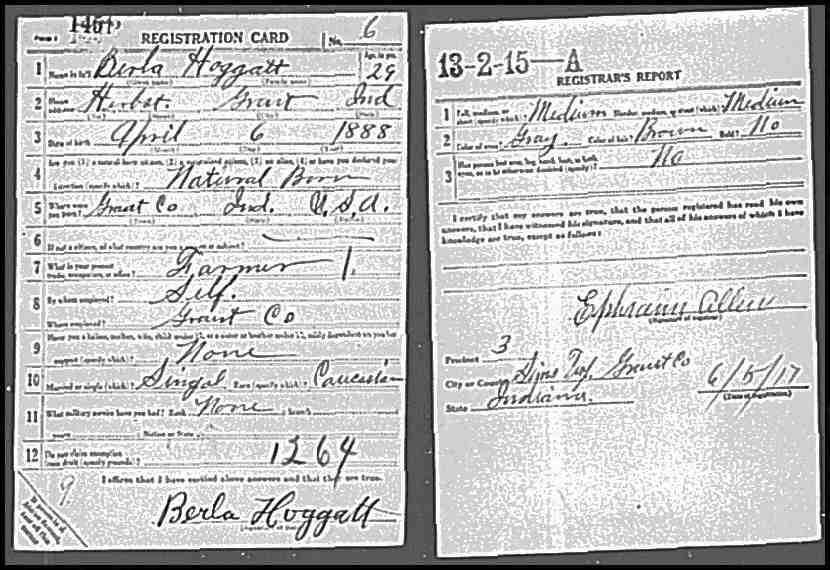 1454
Form 1 REGISTRATION CARD No. 6
1 Name in full Berla Hoggatt Age, in yrs. 29
(Given name) (Family name)
2 Home address Herbst. Grant Ind
(No.) (Street) (City) (State)
3 Date of birth April 6 1888
(Month) (Day) (Year)
Are you (1) a natural born citizen, (2) a naturalized citizen, (3) an alien, (4) or have you declared your
4 intention (specify which)? Natural Born
5 Where were you born? Grant Co Ind. U.S.A.
(Town) (State) (Nation)
6 If not a citizen, of what country are you a citizen or subject?
7 What is your present trade, occupation, or office? Farmer 1.
8 By whom employed? Self.
Where employed? Grant Co
Have you a father, mother, wife, child under 12, or a sister or brother under 12, solely dependent on you for
9 support (specify which)? None
10 Married or single (which)? Singal Race (specify which)? Caucasian
11 What military service have you had? Rank None branch
years Nation or State
12 Do you claim exemption from draft (specify grounds)? 1264
I affirm that I have verified above answers and that they are true.
9
Berla Hoggatt
13-2-15-A
REGISTRAR'S REPORT
1 Tall, medium, or short (specify which)? Medium Slender, medium, or stout (which)? Medium
2 Color of eyes? Gray. Color of hair? Brown Bald? No
3 Has person lost arm, leg, hand, foot, or both eyes, or is he otherwise disabled (specify)? No
I certify that my answers are true, that the person registered has read his own
answers, that I have witnessed his signature, and that all of his answers of which I have
knowledge are true, except as follows:
Ephraim Allen
(Signature of registrar)
Precinct 3
City or County Sims Twp. Grant Co
State Indiana. 6/5/17
(Date of registration)